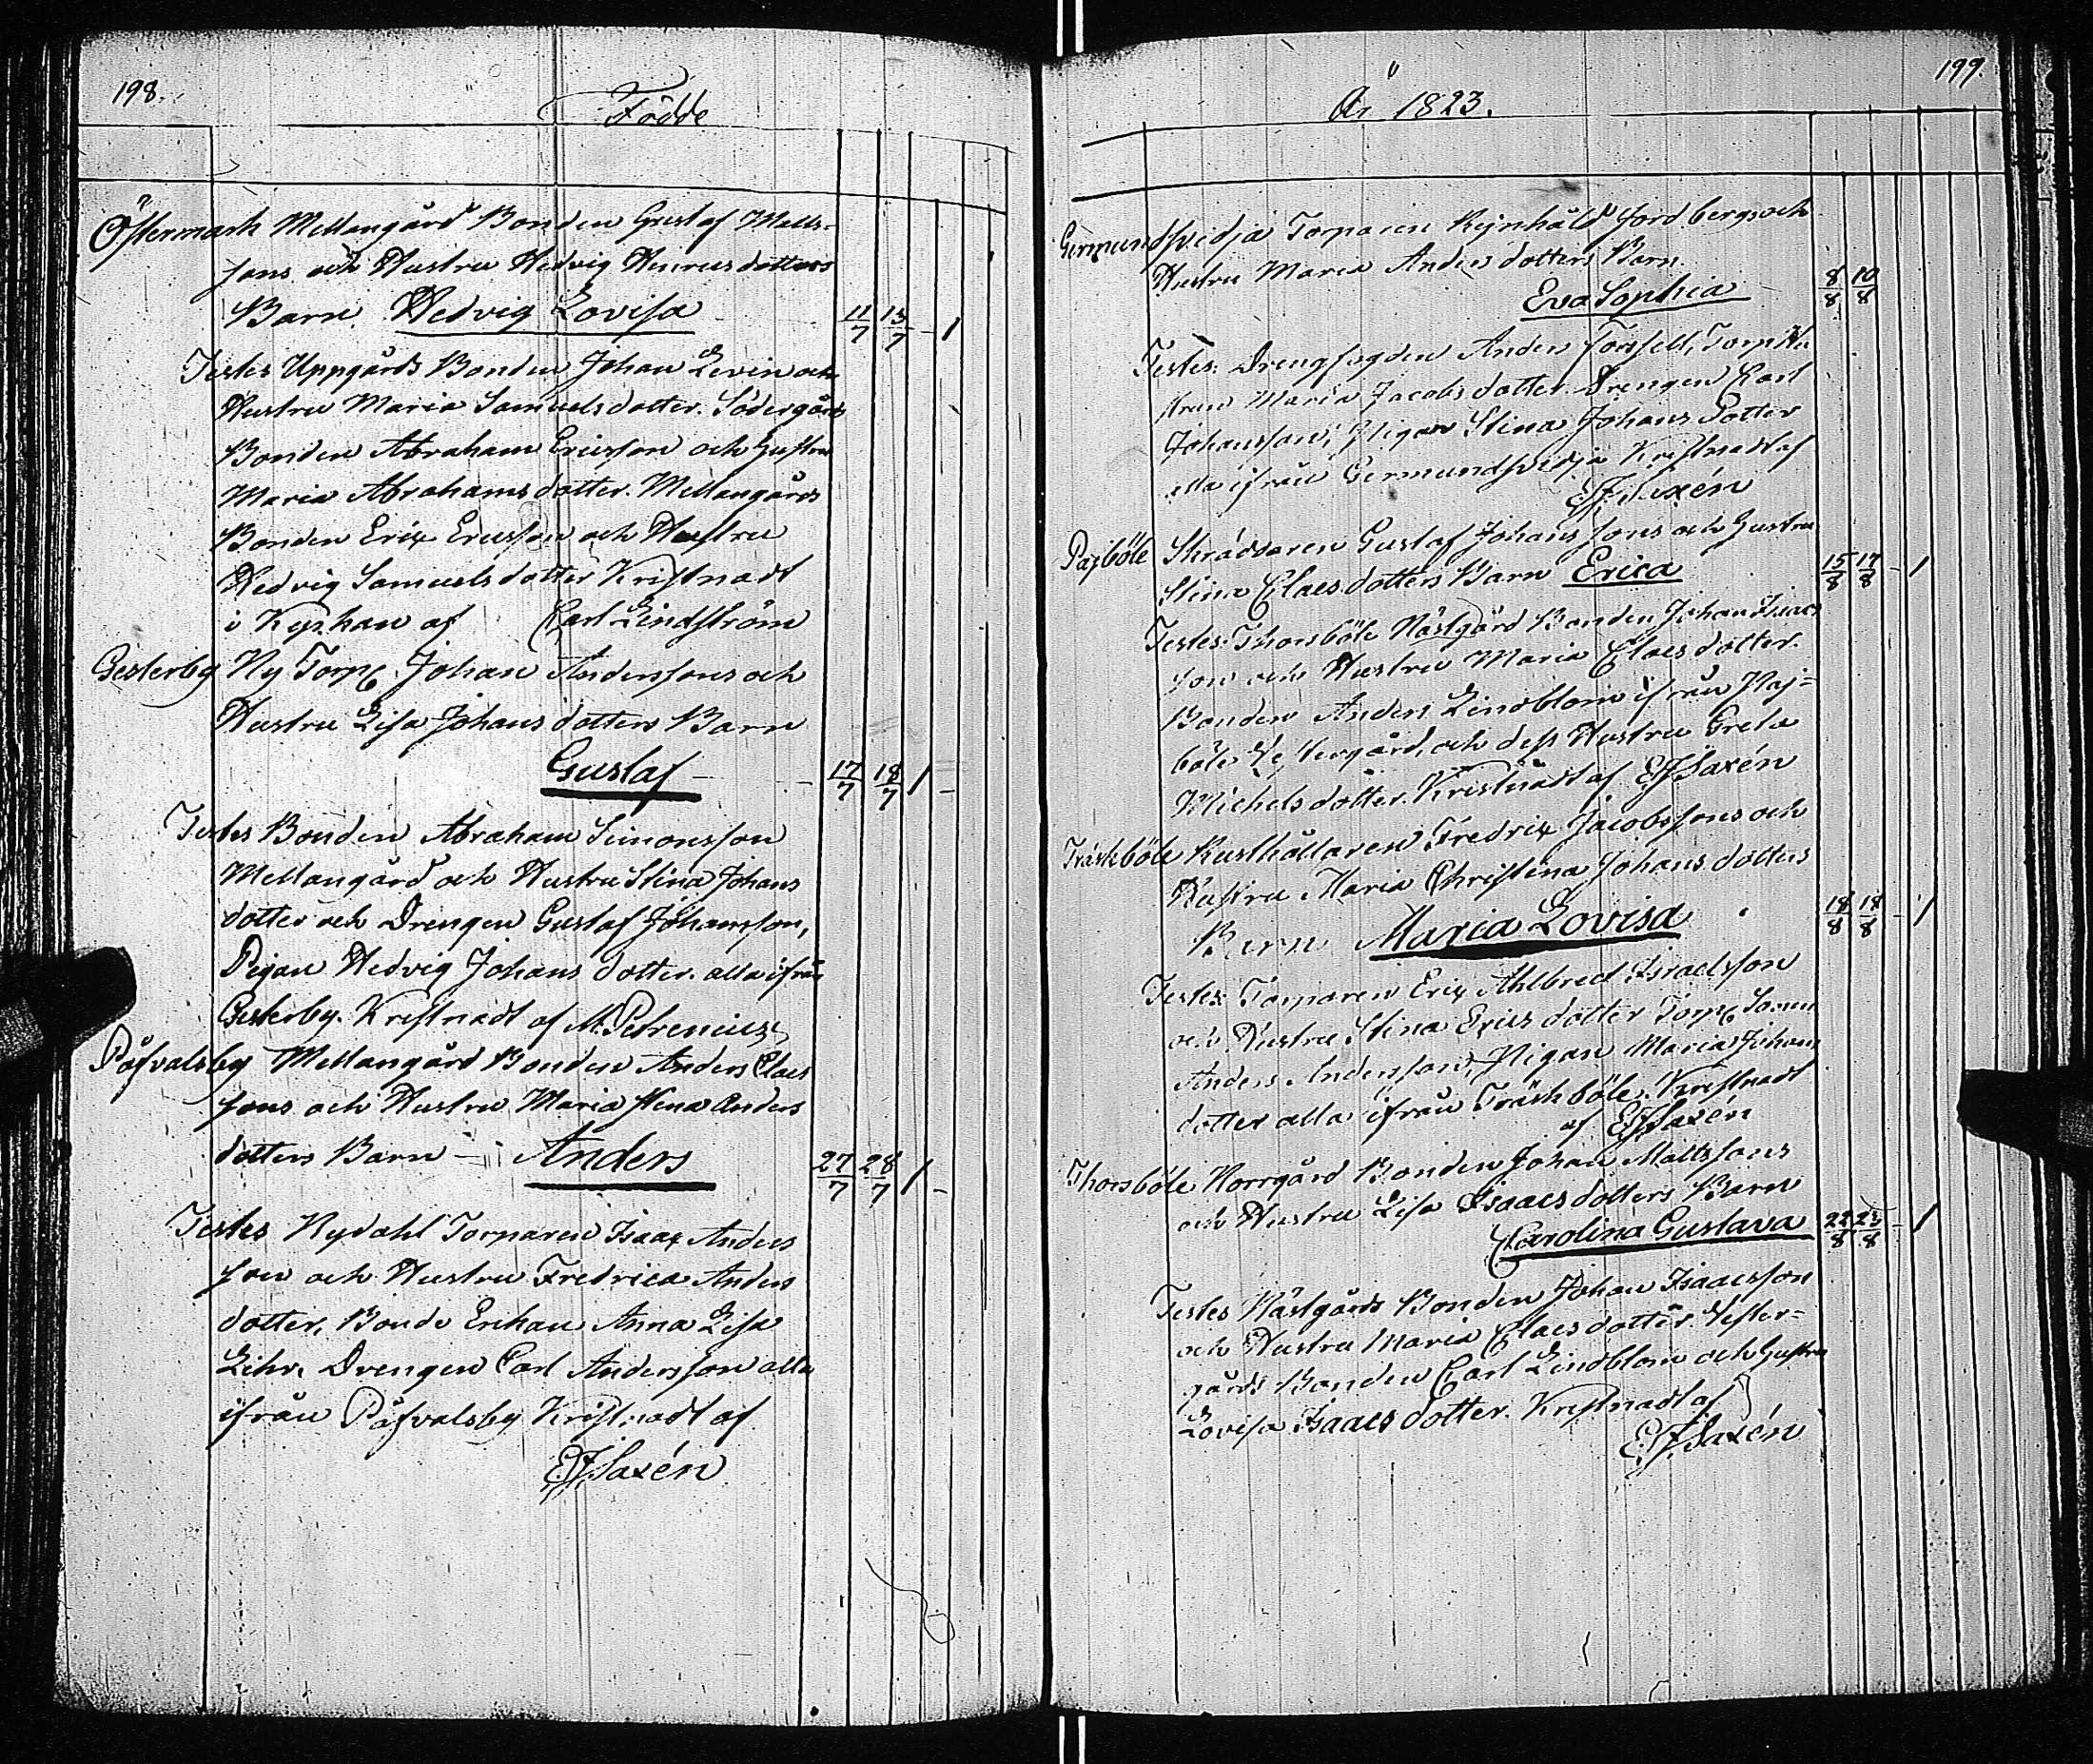 198.
Födde
Östermark Mellangård Bonden Gustaf Matts-
sons och Hustru Hedvig Henrics dotters
Barn Hedvig Lovisa 11/7 13/7 - 1
Testes Uppgårds Bonden Johan Levin och
Hustru Maria Samuels dotter. Södergårds
Bonden Abraham Ericsson och Hustru
Maria Abrahams dotter. Mellangårds
Bonden Eric Ericsson och Hustru
Hedvig Samuels dotter Kristnadt
i Kyrkan af Carl Lindström
Gesterby Ny Torp. Johan Anderssons och
Hustru Lisa Johans dotters Barn
Gustaf - 17/7 18/7 1 -
Testes Bonden Abraham Simonsson
Mellangård och Hustru Stina Johans
dotter och Drengen Gustaf Johansson,
Pigan Hedvig Johans dotter. alla ifrån
Gesterby. Kristnadt af M. Petrenius
Påfvalsby Mellangård Bonden Anders Claes
sons och Hustru Maria Stena Anders
dotters Barn - Anders 27/7 28/7 1 -
Testes Nydahl Torparen Isaac Anders
son och Hustru Fredrica Anders
dotter, Bonde Enkan Anna Lisa
Drengen Carl Andersson alla
ifrån Påfvalsby Kristnadt af
E J Saxén
199.
År 1823.
Germundsvidja Torparen Rejnhåld Fordbergs och
Hustru Maria Anders dotters Barn
Eva Sophia 8/8 10/8
Testes: Drengfogden Anders Forssell, Torp. Hu
strun Maria Jacobs dotter. Drengen Carl
Johansson, Pigan Stina Johans Dotter
alla ifrån Germundsvidja Kristnadt af
E J Saxén
Pajböle Skräddaren Gustaf Johans sons och Hustru
Stina Claes dotters Barn Erica 15/8 17/8 - 1
Testes: Thorsböle Nästgård Bonden Johan Isaacs
son och Hustru Maria Claes dotter.
Bonden Anders Lindblom ifrån Paj-
böle Vestergård, och dess Hustru Greta
Michels dotter. Kristnadt af E J Saxén
Träskböle Rusthållaren Fredric Jacobssons och
Hustru Maria Christina Johans dotters
Barn Maria Lovisa 18/8 18/8 - 1
Testes: Torparen Eric Ahlbred Israelsson
och Hustru Stina Erics dotter Torp. Sonen
Anders Andersson, Pigan Maria Johans
dotter alla ifrån Träskböle. Kristnadt
af E J Saxén
Thorsböle Norrgård Bonden Johan Mattssons
och Hustru Lisa Isaacs dotters Barn
Carolina Gustava 22/8 23/8 - 1
Testes Nästgårds Bonden Johan Isaacsson
och Hustru Maria Claes dotter. Vester-
gårds Bonden Carl Lindblom och Hustru
Lovisa Isaacs dotter. Kristnadt af
E J Saxén